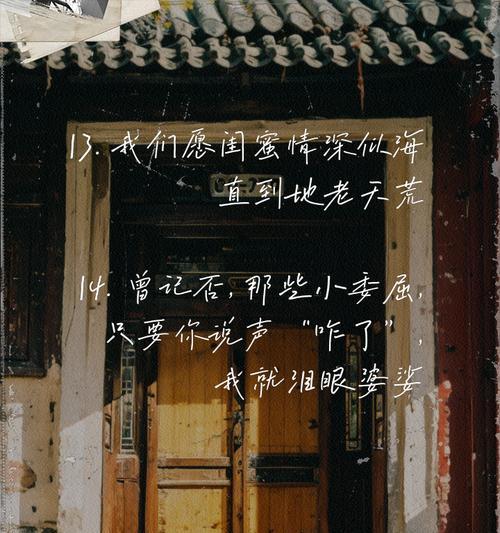 13. 我们愿闺蜜情深似海
直到地老天荒
14. 曾记否，那些小委屈，
只要你说声“咋了”，
我就泪眼婆娑